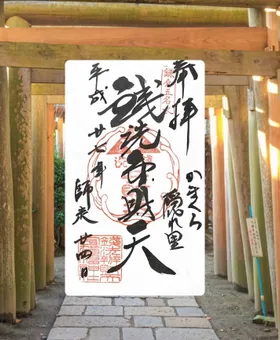 奉拝
かまくら
隠れ里
銭洗弁財天
平成廿七年
師走廿四日